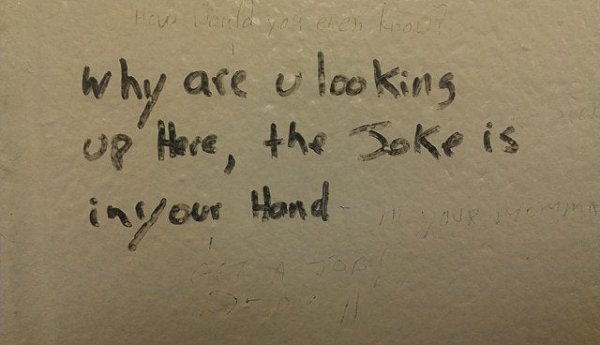 How would you even know?
why are u looking
up Here, the Joke is
in your Hand
YOUR MOMMA
GET A